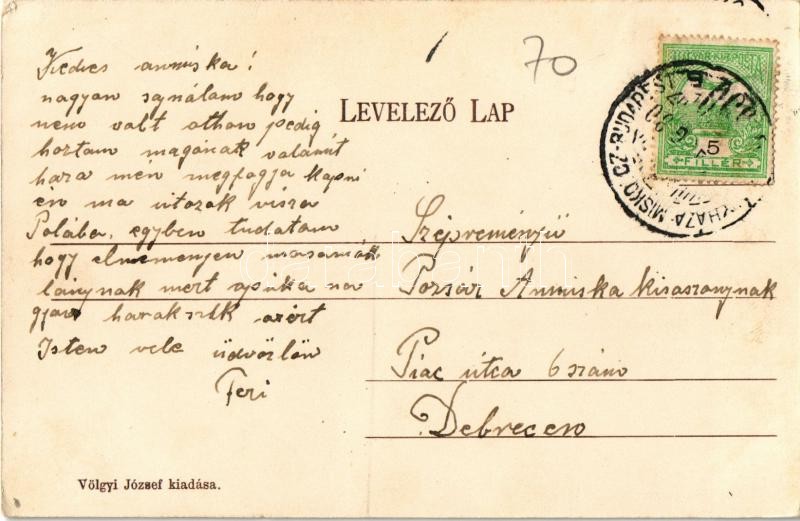 Kedves anniska!
nagyon sajnálom hogy
nem valt othon pedig
hoztam magának valamit
hara mén megfogja kapni
én ma utozok visra
Polába, egyben tudatom
hogy elmenenyen masamák
lánynak mert apika na
gyon harakszik azért
Isten vele üdvözlön
Feri
70
LEVELEZŐ LAP
5
FILLÉR
BUDAPEST
Szépreményü
Pozsár Anniska kisaszonynak
Piac útca 6 szám
Debrecen
Völgyi József kiadása.
darabanth